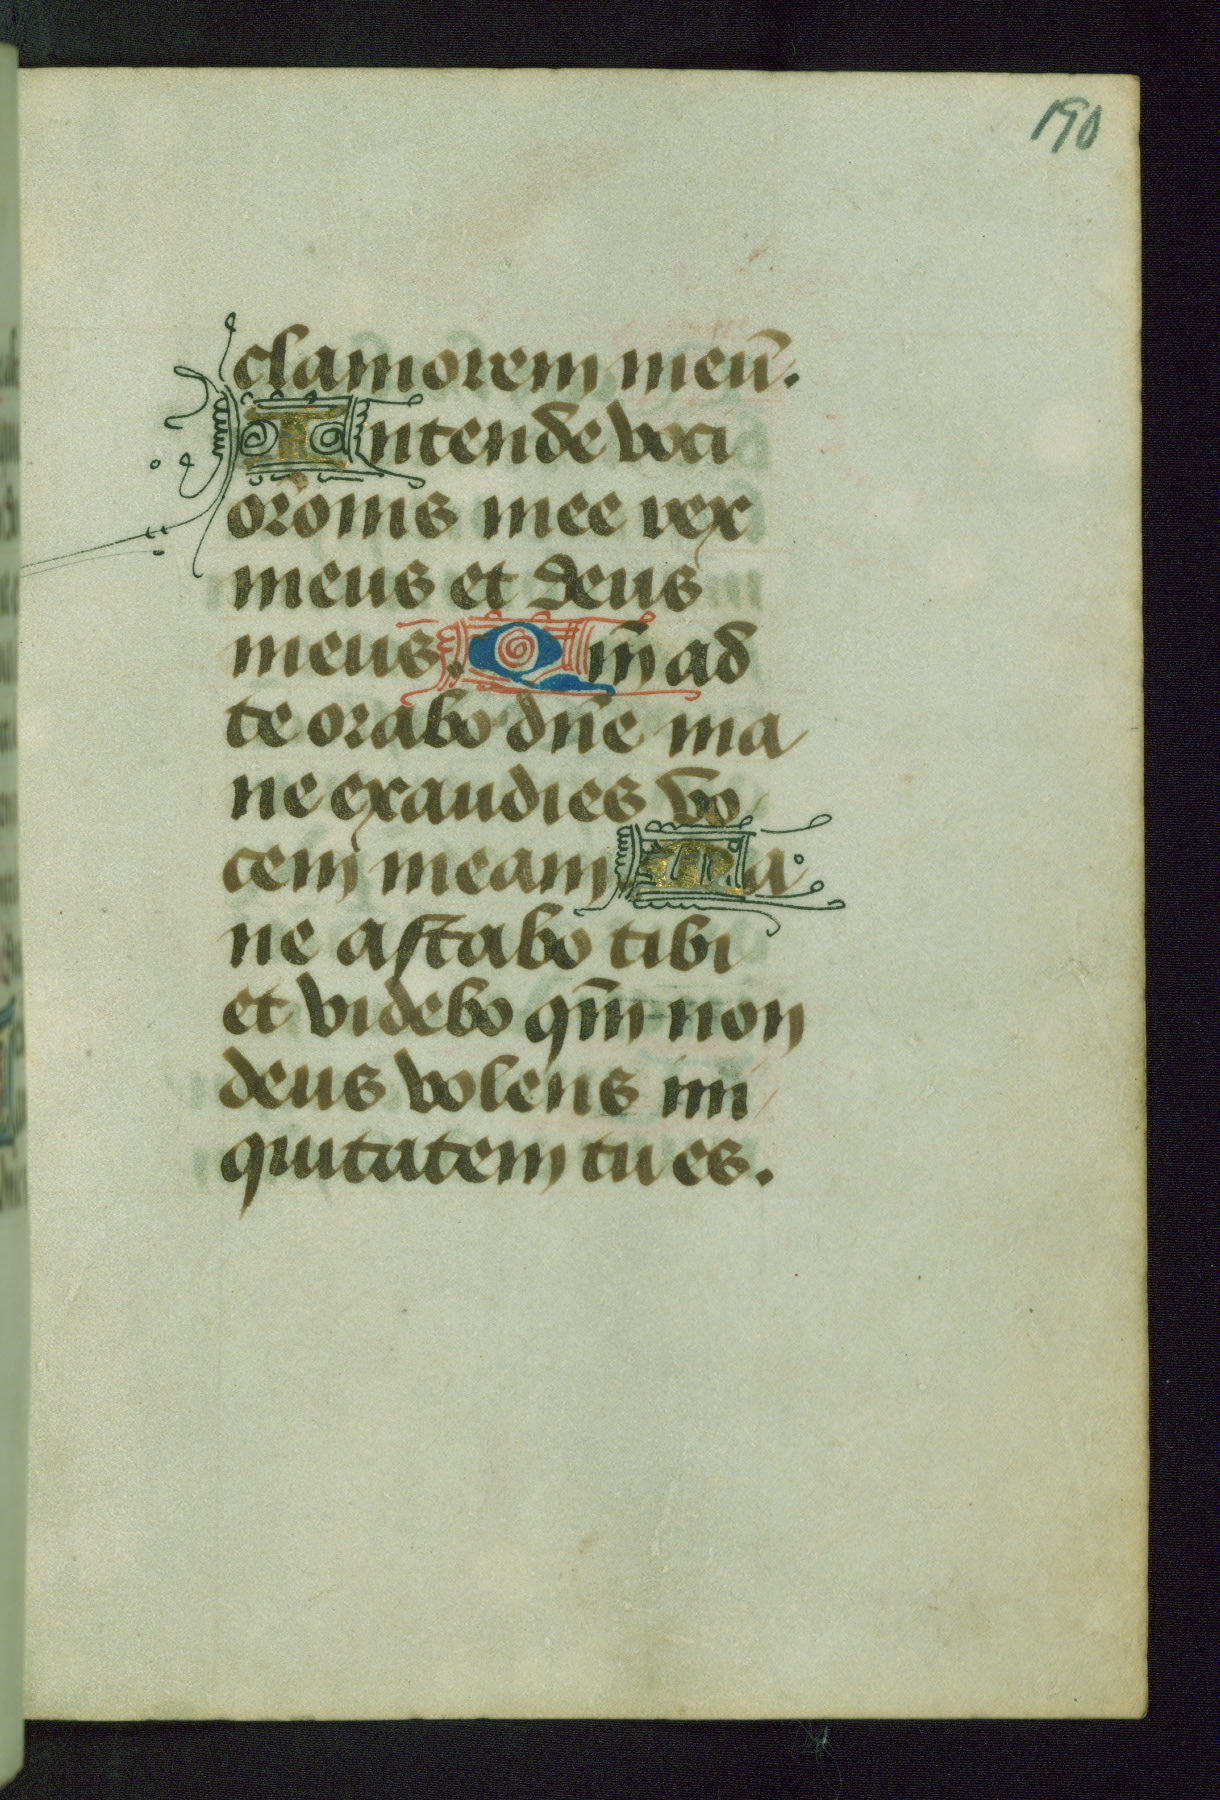 190
clamorem meū.
Intende voci
orōnis mee rex
meus et deus
meus. Qm̄ ad
te orabo dn̄e ma
ne exaudies vo
cem meam Ma
ne astabo tibi
et videbo qm̄ non
deus volens ini
quitatem tu es.